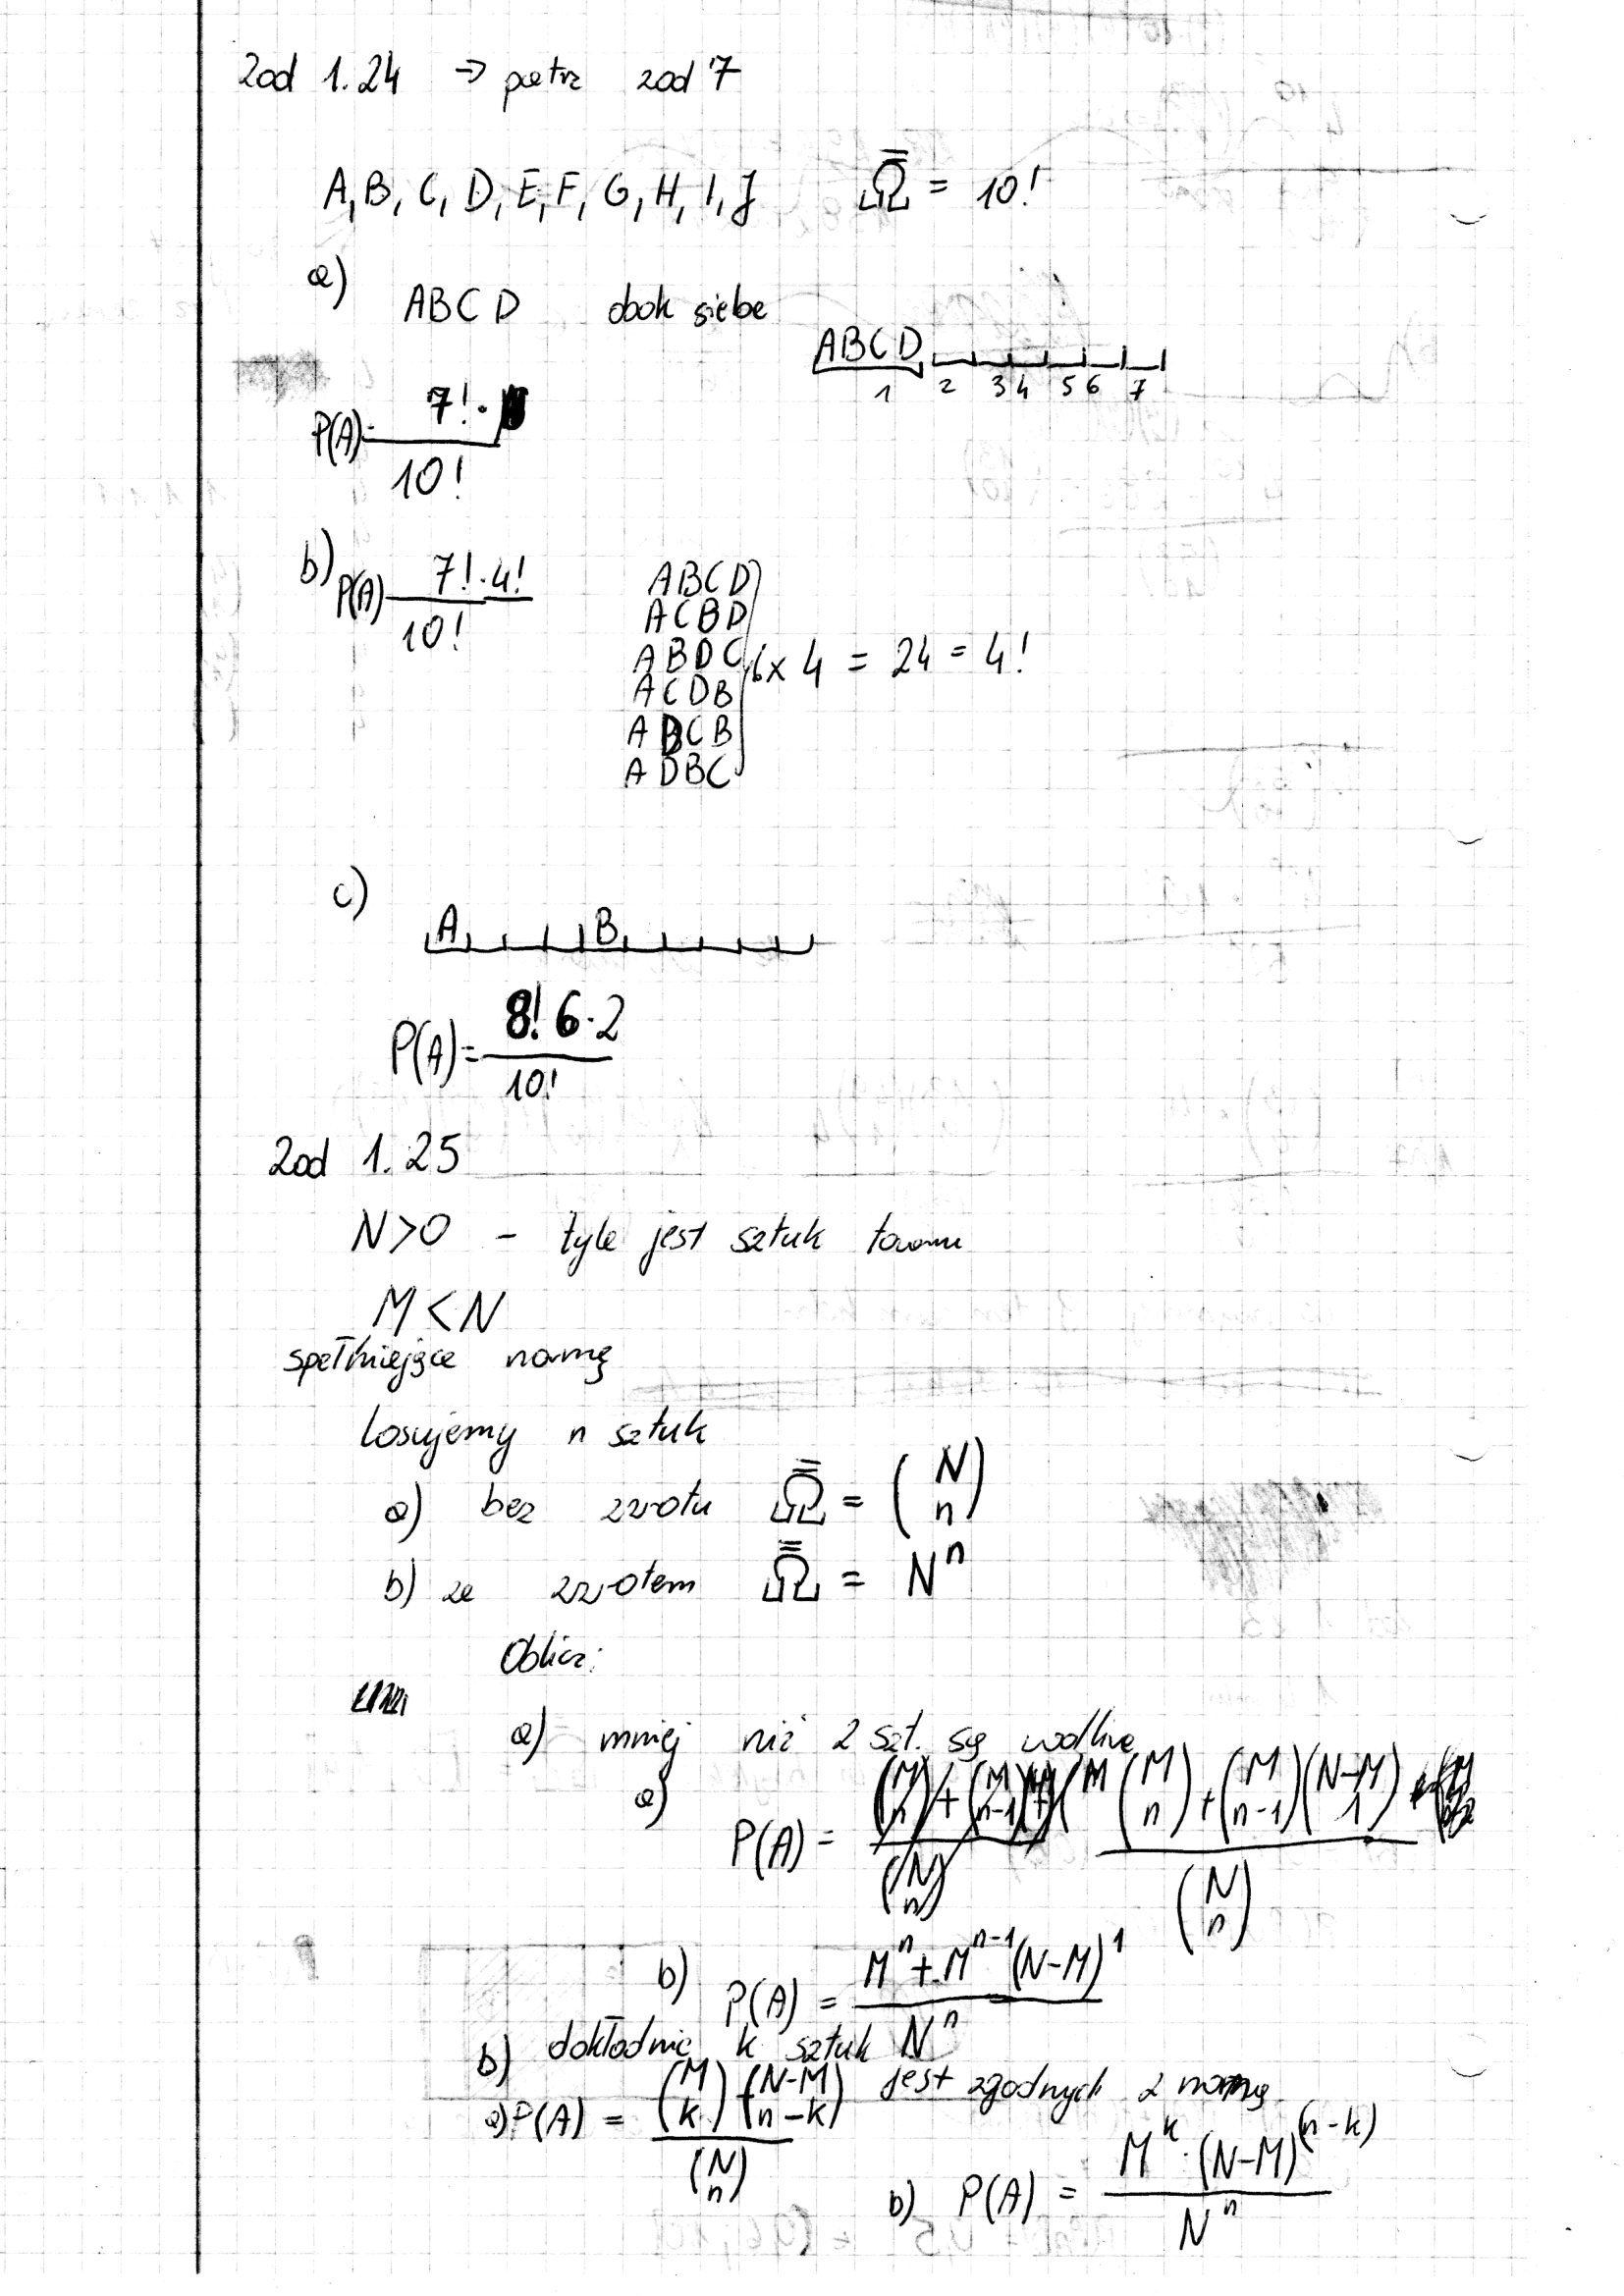 Zad 1.24 → patrz zad 7
A, B, C, D, E, F, G, H, I, J Ω̿ = 10!
a) ABCD obok siebie
ABCD
1 2 3 4 5 6 7
P(A) = 7!· / 10!
b) P(A) 7!·4! / 10!
ABCD
ACBD
ABDC
ACDB
ADCB
ADBC
6 x 4 = 24 = 4!
c)
A B
P(A) = 8! 6·2 / 10!
Zad 1.25
N>0 - tyle jest sztuk towaru
M<N
spełniające normę
Losujemy n sztuk
a) bez zwrotu Ω̿ = (N n)
b) ze zwrotem Ω̿ = N^n
Oblicz:
a) mniej niż 2 szt. są wadliwe
a) P(A) = (M n) + (M n-1)(N-M 1) / (N n)
b) P(A) = M^n + M^(n-1) (N-M)^1 / N^n
b) dokładnie k sztuk jest zgodnych z normą
a) P(A) = (M k)·(N-M n-k) / (N n)
b) P(A) = M^k·(N-M)^(n-k) / N^n